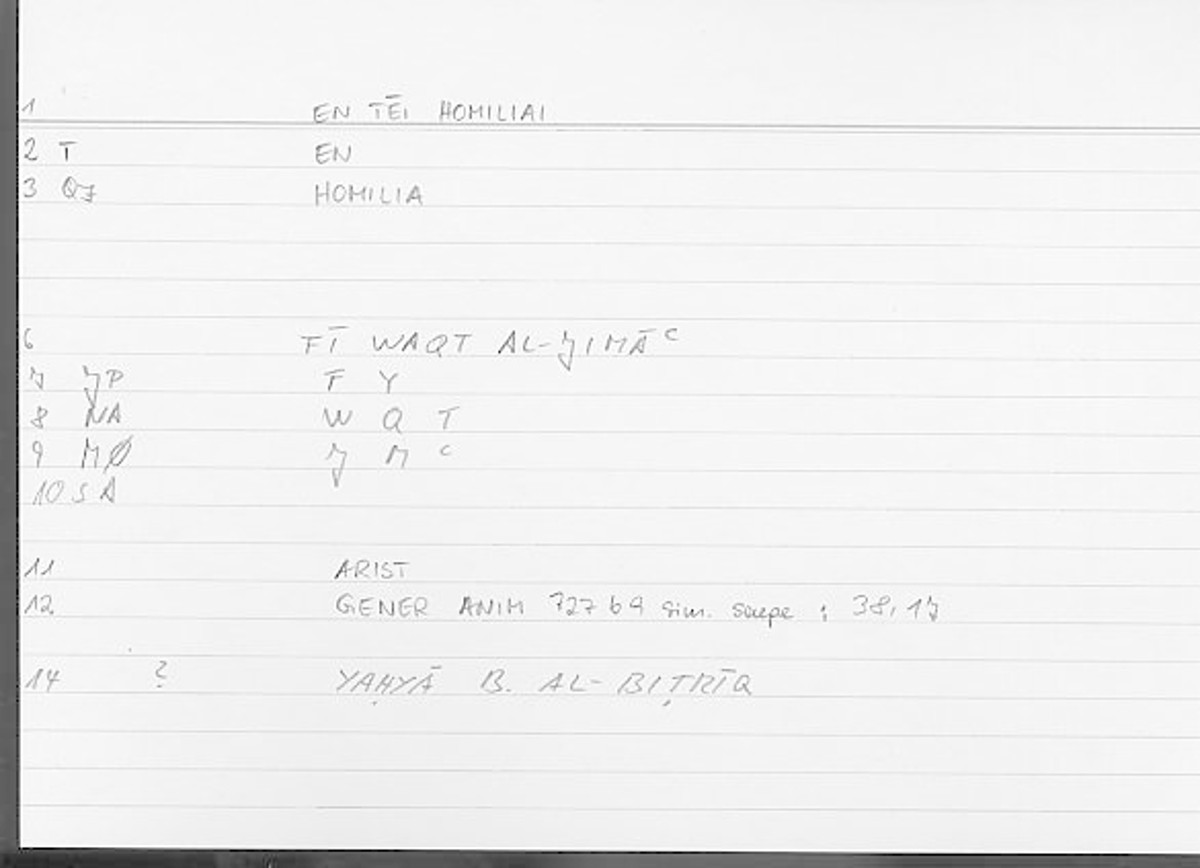 1 EN TĒI HOMILIAI
2 T EN
3 QJ HOMILIA
6 FĪ WAQT AL-JIMĀ ͨ
7 JP F Y
8 NA W Q T
9 MØ J M ͨ
10 SA
11 ARIST
12 GENER ANIM 727 b 9 sim. saepe ; 38,17
14 ? YAḤYĀ B. AL-BIṬRĪQ